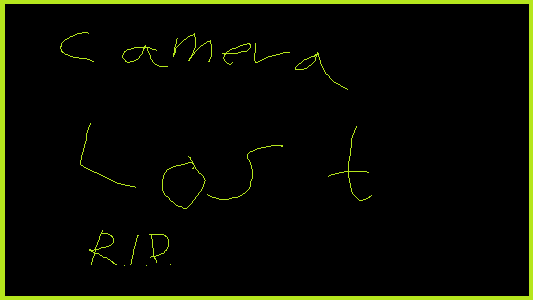 Camera
Lost
R.I.P.